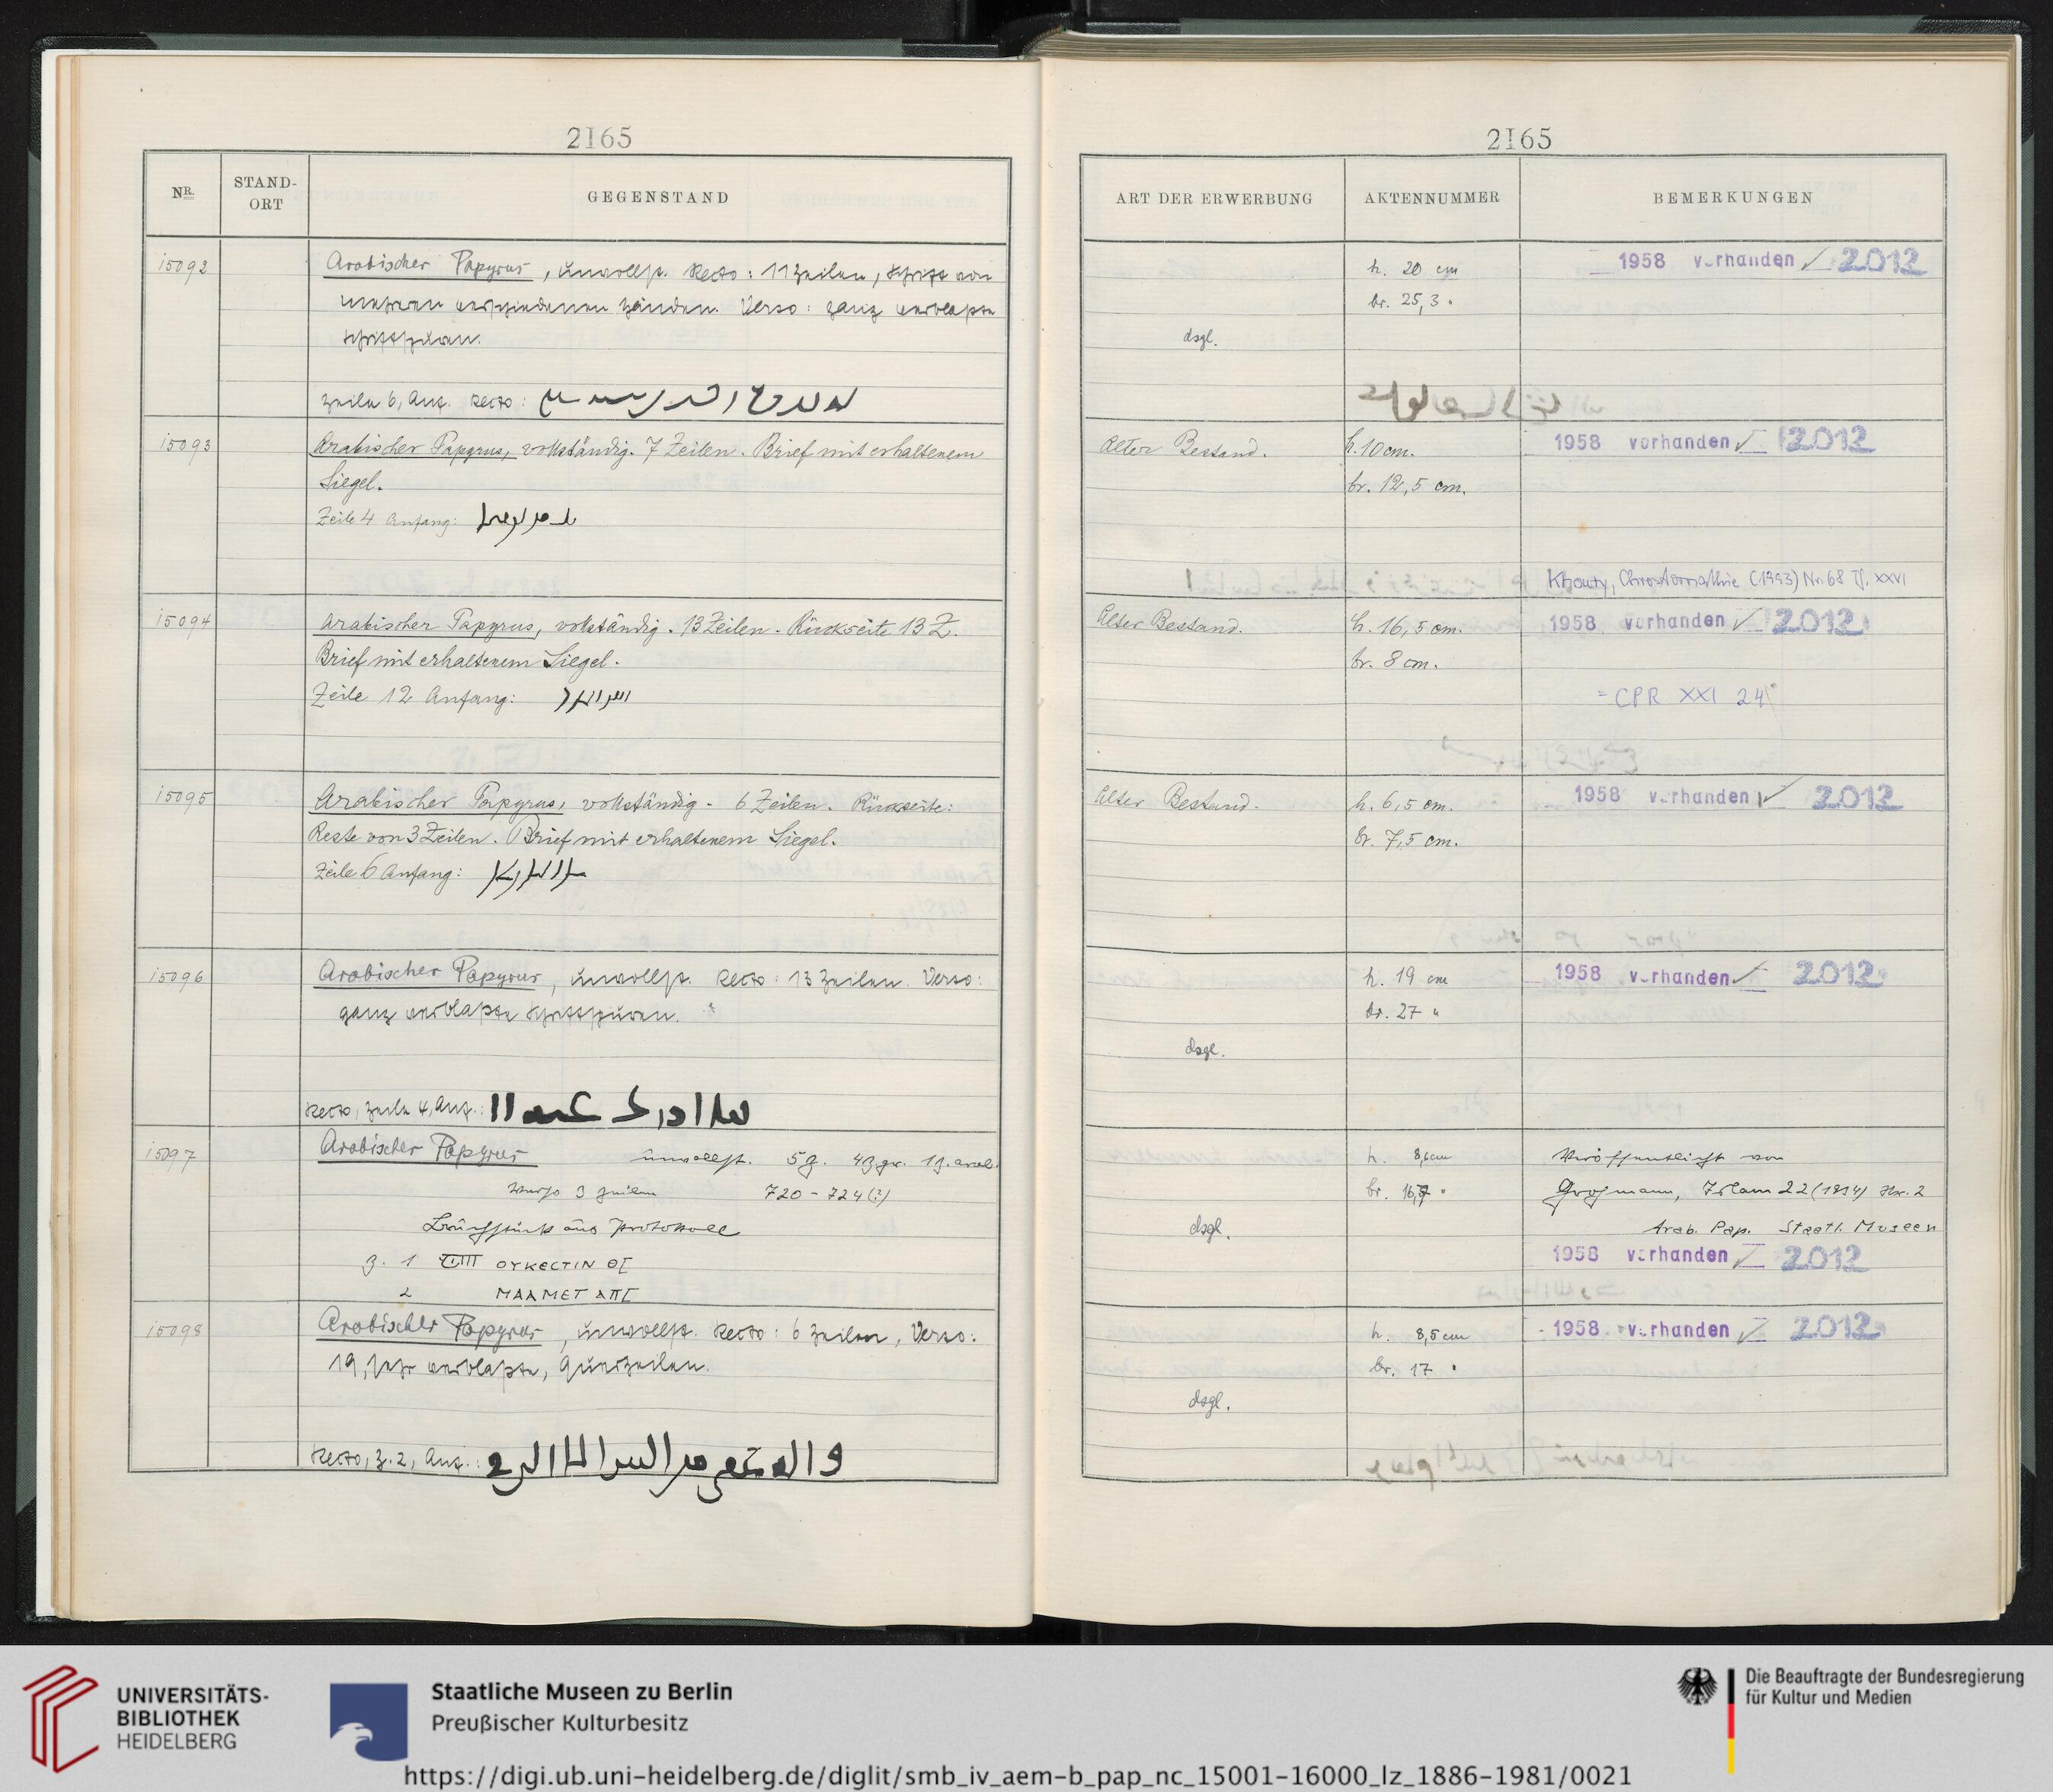 2165
NR.
STAND-
ORT
GEGENSTAND
15092
Arabischer Papyrus, unvollst. Recto: 11 Zeilen, Schrift von
mehreren verschiedenen Händen. Verso: ganz verblaßte
Schriftspuren.
Zeile 6, Anf. Recto:
15093
Arabischer Papyrus, vollständig. 7 Zeilen. Brief mit erhaltenem
Siegel.
Zeile 4 Anfang:
15094
Arabischer Papyrus, vollständig. 13 Zeilen. Rückseite 13 Z.
Brief mit erhaltenem Siegel.
Zeile 12 Anfang:
15095
Arabischer Papyrus, vollständig. 6 Zeilen. Rückseite:
Reste von 3 Zeilen. Brief mit erhaltenem Siegel.
Zeile 6 Anfang:
15096
Arabischer Papyrus, unvollst. Recto: 13 Zeilen. Verso:
ganz verblaßte Schriftspuren.
Recto, Zeile 4, Anf.:
15097
Arabischer Papyrus unvollst. 5 Z. 4 Z gr. 1 Z. arab.
Verso 3 Zeilen 720-724(?)
Bruchstück aus Protokoll
Z. 1 ΟΥΚΕCΤΙΝ ΘΓ
2 ΜΑΑΜΕΤ ΑΠΓ
15098
Arabischer Papyrus, unvollst. Recto: 6 Zeilen, Verso:
19, sehr verblaßte, Querzeilen.
Recto, Z. 2, Anf.:
2165
ART DER ERWERBUNG
AKTENNUMMER
BEMERKUNGEN
h. 20 cm
1958 vorhanden ✓ 2012
br. 25,3 "
dsgl.
Alter Bestand.
h. 10 cm.
1958 vorhanden ✓ 2012
br. 12,5 cm.
Khoury, Chrestomathie (1993) Nr. 68 Tf. XXVI
Alter Bestand.
h. 16,5 cm.
1958 vorhanden ✓ 2012
br. 8 cm.
= CPR XXI 24
Alter Bestand.
h. 6,5 cm.
1958 vorhanden ✓ 2012
br. 7,5 cm.
h. 19 cm
1958 vorhanden ✓ 2012
br. 27 "
dsgl.
h. 8,6 cm
Veröffentlicht von
br. "
Grohmann, Islam 22 (1934) Nr. 2
dsgl.
Arab. Pap. Staatl. Museen
1958 vorhanden ✓ 2012
h. 8,5 cm
1958 vorhanden ✓ 2012
br. 17 "
dsgl.
UNIVERSITÄTS-
BIBLIOTHEK
HEIDELBERG
Staatliche Museen zu Berlin
Preußischer Kulturbesitz
Die Beauftragte der Bundesregierung
für Kultur und Medien
https://digi.ub.uni-heidelberg.de/diglit/smb_iv_aem-b_pap_nc_15001-16000_lz_1886-1981/0021